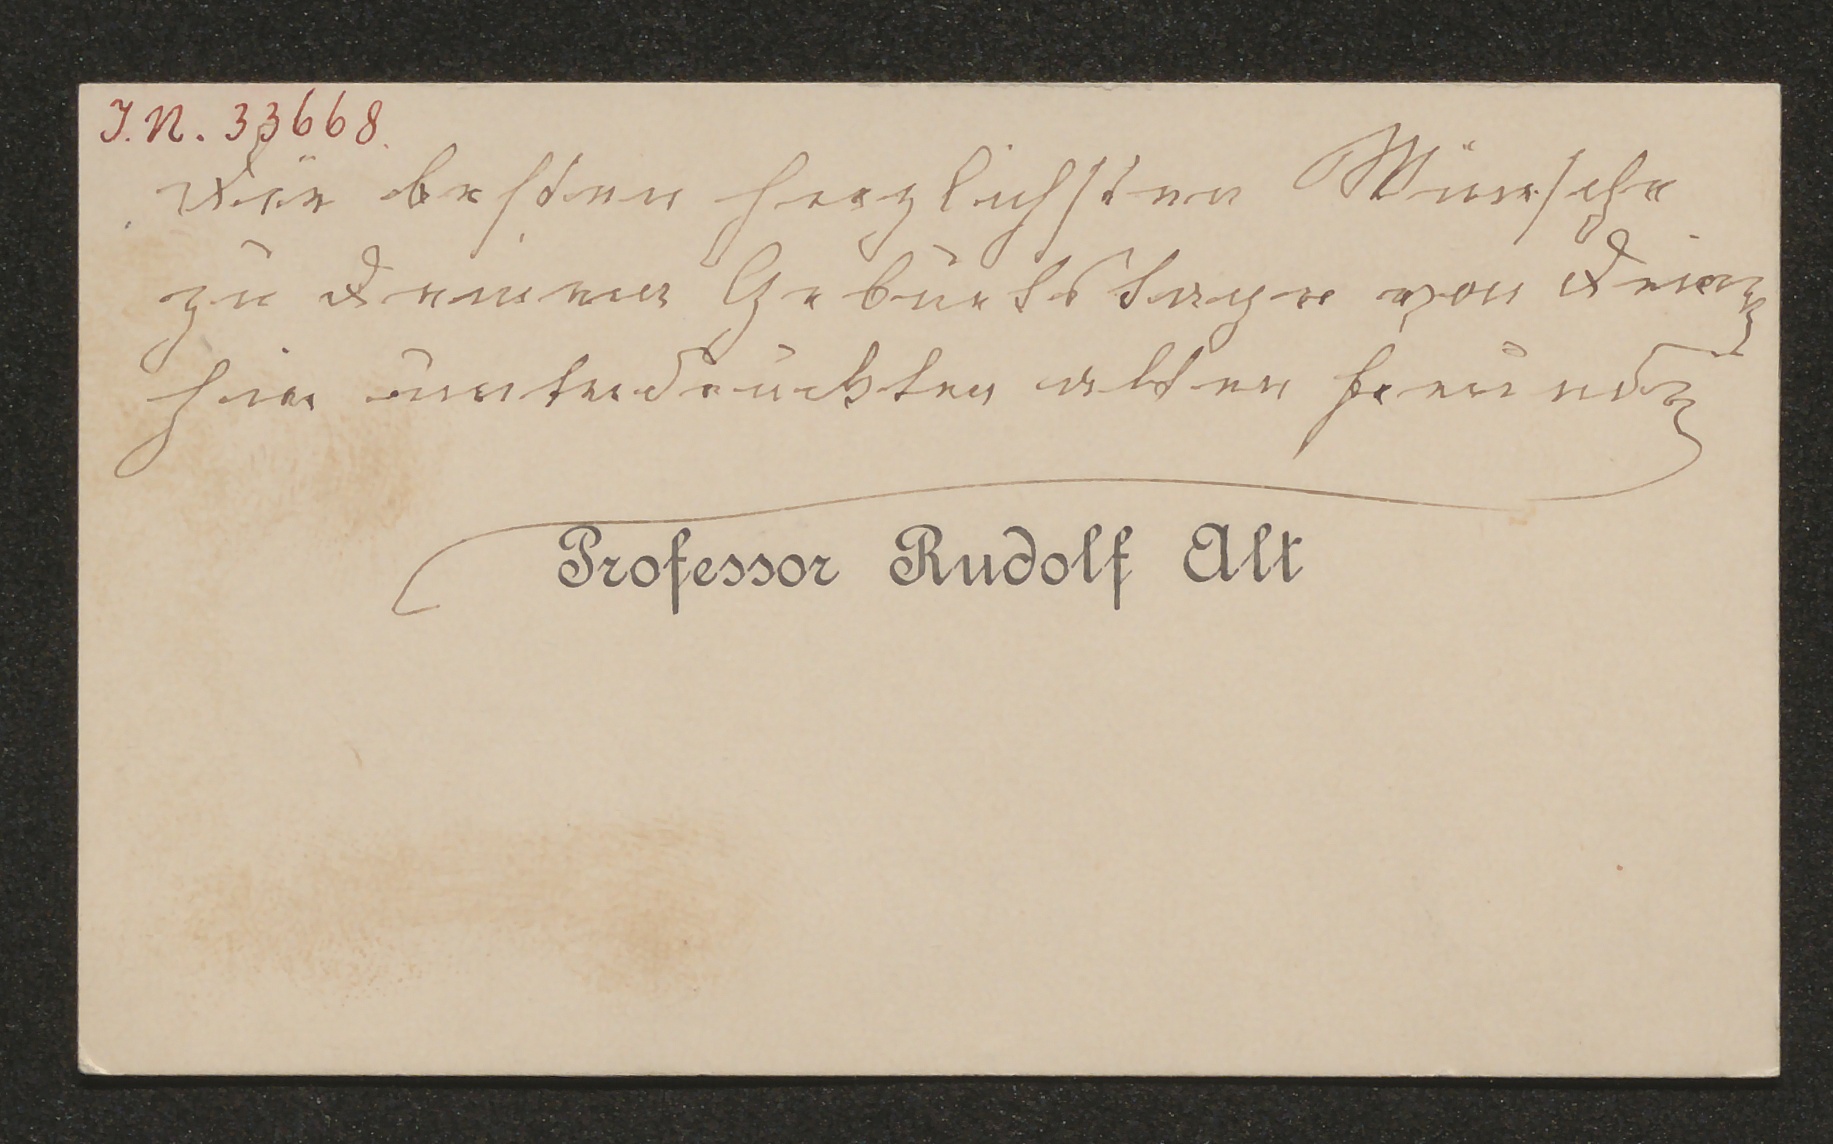 J.N. 33668.
Die besten herzlichsten Wünsche
zu Deinem Geburtstage von Deinem
hier unterdruckten alten Freunde
Professor Rudolf Alt